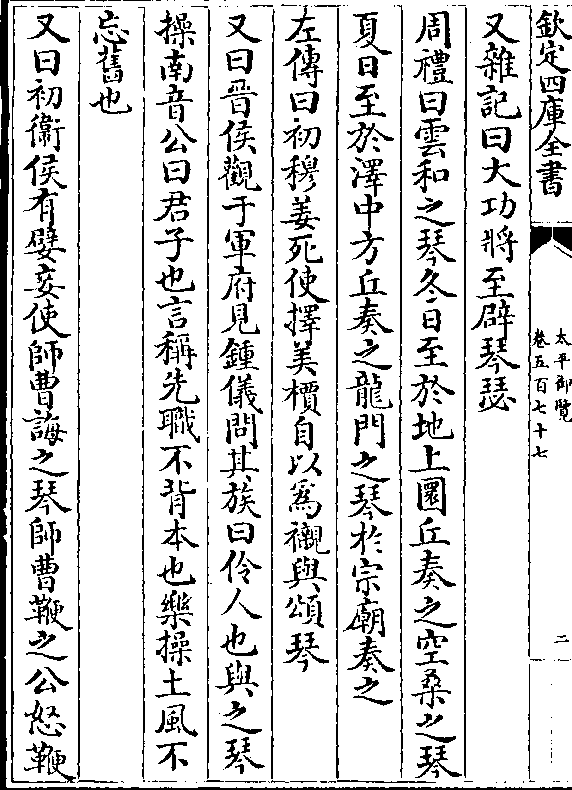 欽定四庫全書
太平御覽
卷五百七十七
二
又雜記曰大功將至辟琴瑟
周禮曰雲和之琴冬日至於地上圜丘奏之空桑之琴
夏日至於澤中方丘奏之龍門之琴於宗廟奏之
左傳曰初穆姜死使擇美檟自以爲櫬與頌琴
又曰晉侯觀于軍府見鍾儀問其族曰伶人也與之琴
操南音公曰君子也言稱先職不背本也樂操土風不
忘舊也
又曰初衞侯有嬖妾使師曹誨之琴師曹鞭之公怒鞭